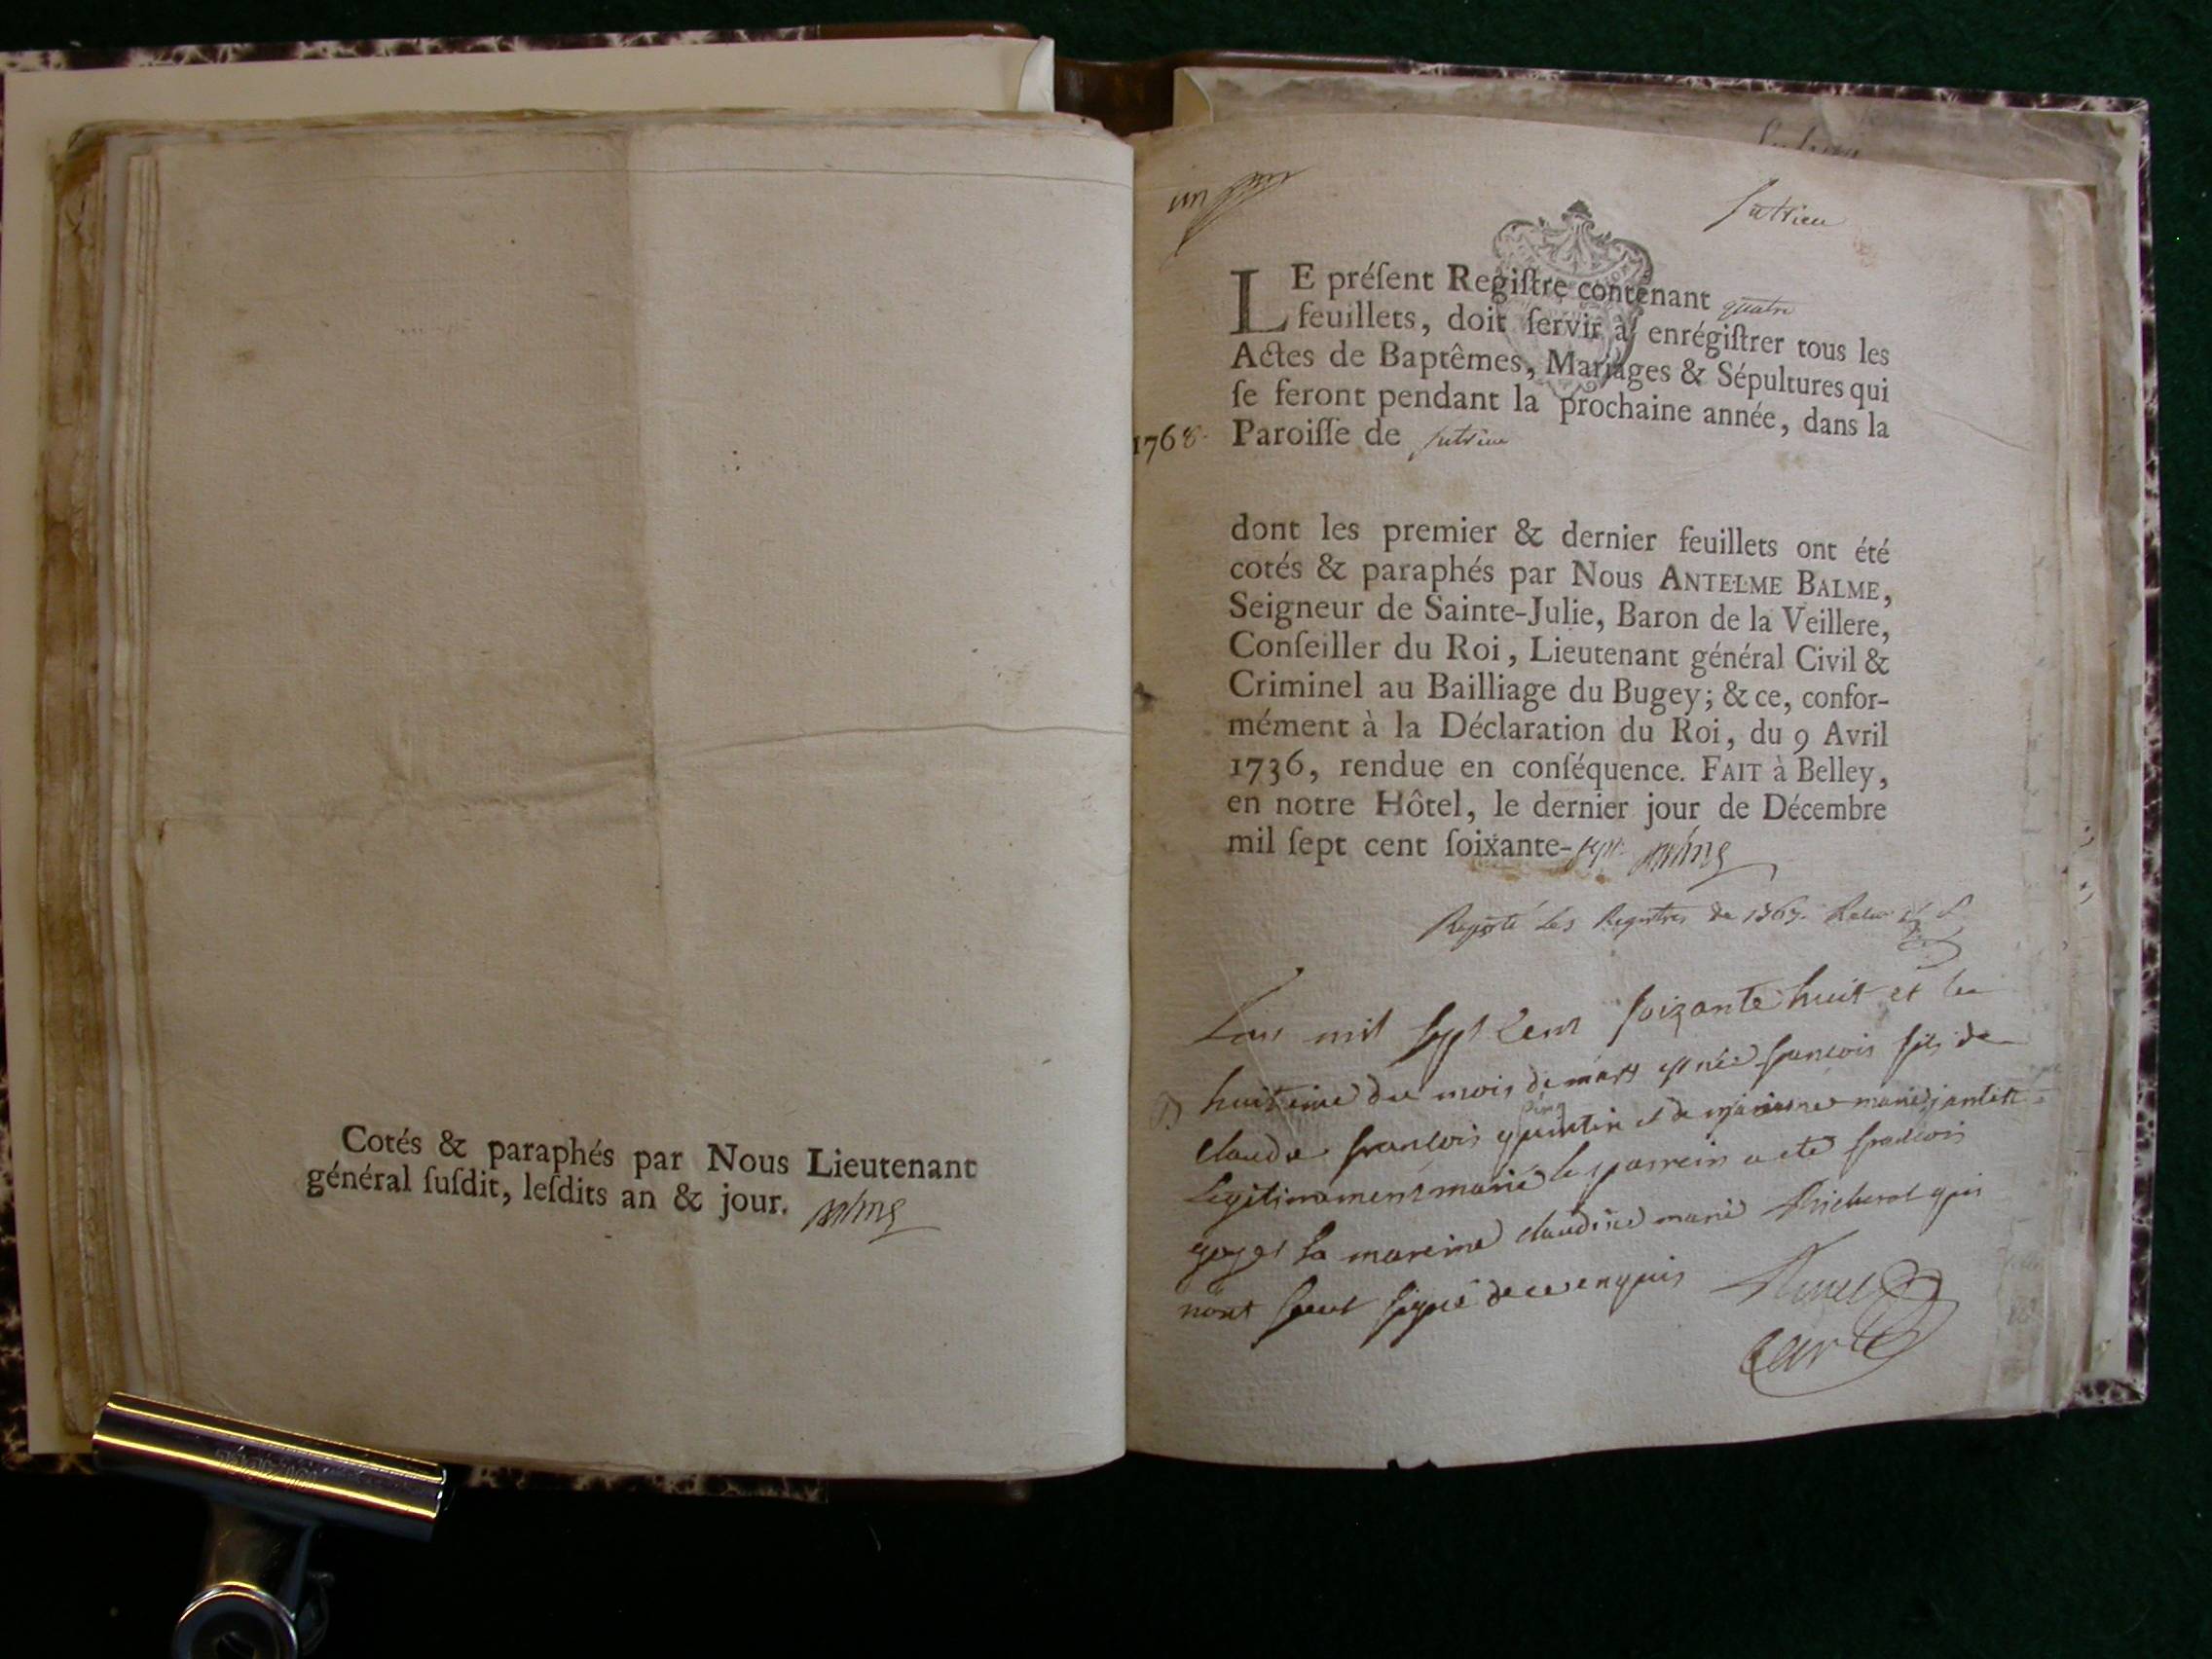 Cotés & paraphés par Nous Lieutenant
général ſuſdit, leſdits an & jour.
un
ſutrieu
LE préſent Regiſtre contenant quatre
feuillets, doit ſervir à enrégiſtrer tous les
Actes de Baptêmes, Mariages & Sépultures qui
ſe feront pendant la prochaine année, dans la
1768. Paroiſſe de ſutrieu
dont les premier & dernier feuillets ont été
cotés & paraphés par Nous ANTELME BALME,
Seigneur de Sainte-Julie, Baron de la Veillere,
Conſeiller du Roi, Lieutenant général Civil &
Criminel au Bailliage du Bugey; & ce, confor-
mément à la Déclaration du Roi, du 9 Avril
1736, rendue en conſéquence. FAIT à Belley,
en notre Hôtel, le dernier jour de Décembre
mil ſept cent ſoixante-sept
les Registres de 1767.
Lan mil sept cent soizante huit et le
huitieme du mois de mars est née francois fils de
claude francois et de marie
legitimement marié le parrein a eté francois
la mareine claudine marie qui
nont sceut signé de ce enquis
curé